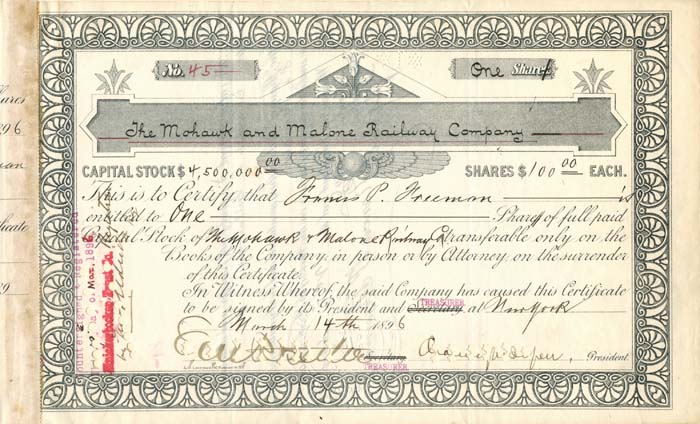 No. 45
One Share
The Mohawk and Malone Railway Company
CAPITAL STOCK $ 4,500,000 00 SHARES $ 100 00 EACH.
This is to Certify, that Francis P. Freeman is
entitled to One Share of full paid
Capital Stock of The Mohawk & Malone Railway Co. transferable only on the
Books of the Company, in person or by Attorney, on the surrender
of this Certificate.
In Witness Whereof, the said Company has caused this Certificate
to be signed by its President and Secretary TREASURER at New York
March 14th 1896
Secretary President.
TREASURER
Countersigned & registered
Mar. 1896
hares
896
ificate